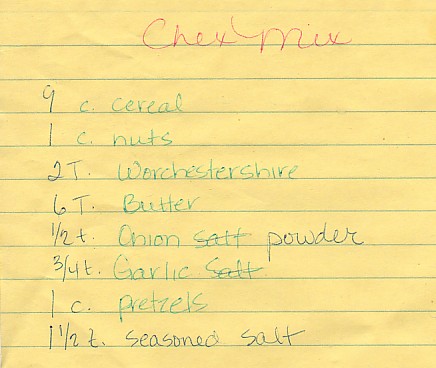 Chex Mix
9 c. cereal
1 c. nuts
2 T. Worchestershire
6 T. Butter
1/2 t. Onion salt powder
3/4 t. Garlic Salt
1 c. pretzels
1 1/2 t. seasoned salt